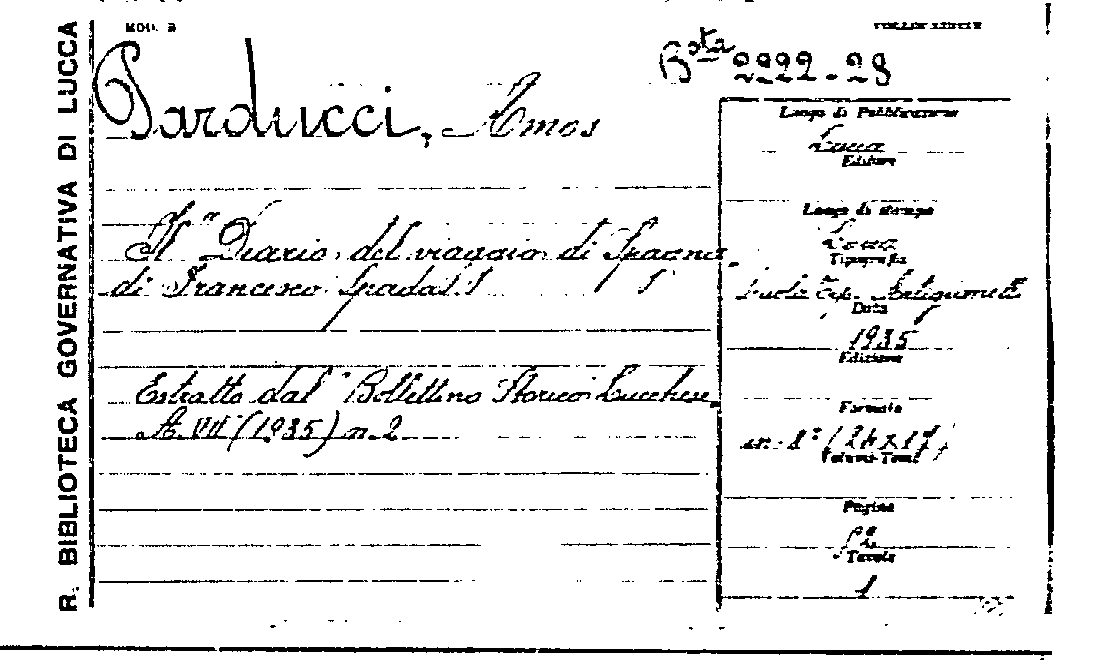 R. BIBLIOTECA GOVERNATIVA DI LUCCA
MOD. B
Parducci, Amos
Bsta 2922-23
Il "Diario del viaggio di Spagna
di Francesco Spada
Estratto dal "Bollettino Storico Lucchese
A. VII (1935) n. 2
Luogo di Pubblicazione
Lucca
Editore
Luogo di stampa
Lucca
Tipografia
Scuola Tip. Artigianelli
Data
1935
Edizione
Formato
in-8° (24x17)
Volumi-Tomi
Pagine
Tavole
1